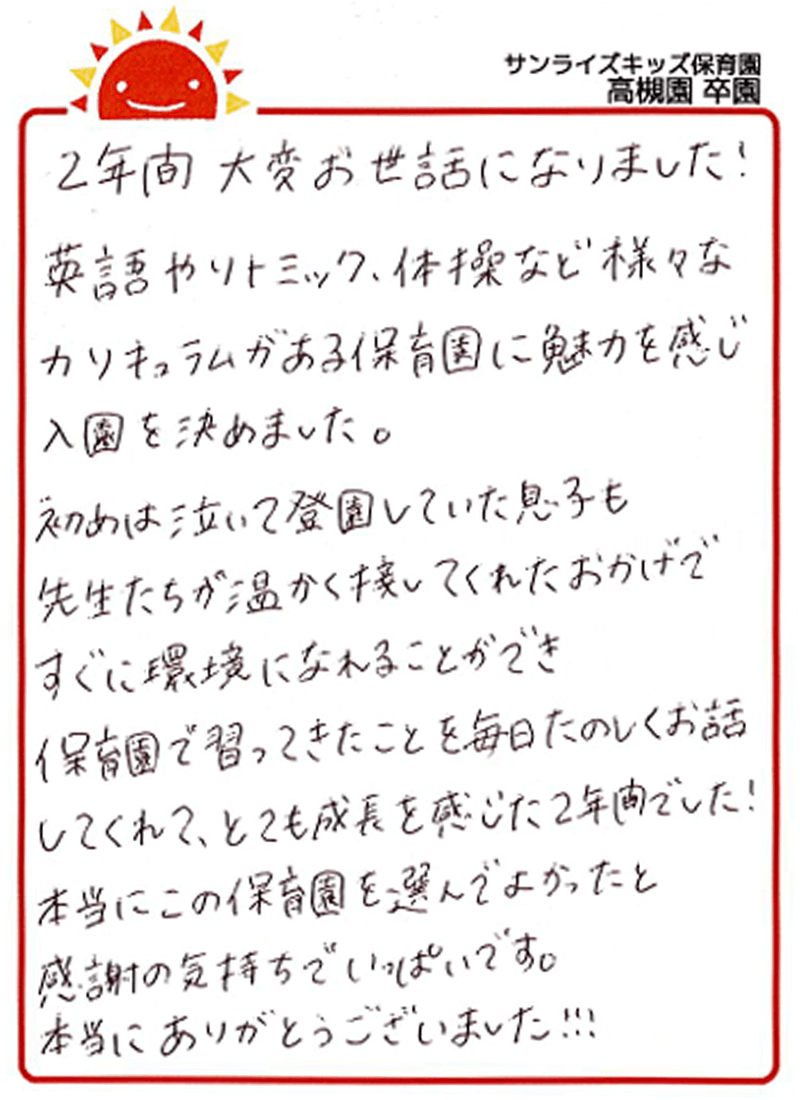 サンライズキッズ保育園
高槻園 卒園
2年間 大変お世話になりました!
英語やリトミック、体操など様々な
カリキュラムがある保育園に魅力を感じ
入園を決めました。
初めは泣いて登園していた息子も
先生たちが温かく接してくれたおかげで
すぐに環境になれることができ
保育園で習ってきたことを毎日たのしくお話
してくれて、とても成長を感じた2年間でした!
本当にこの保育園を選んでよかったと
感謝の気持ちでいっぱいです。
本当にありがとうございました!!!